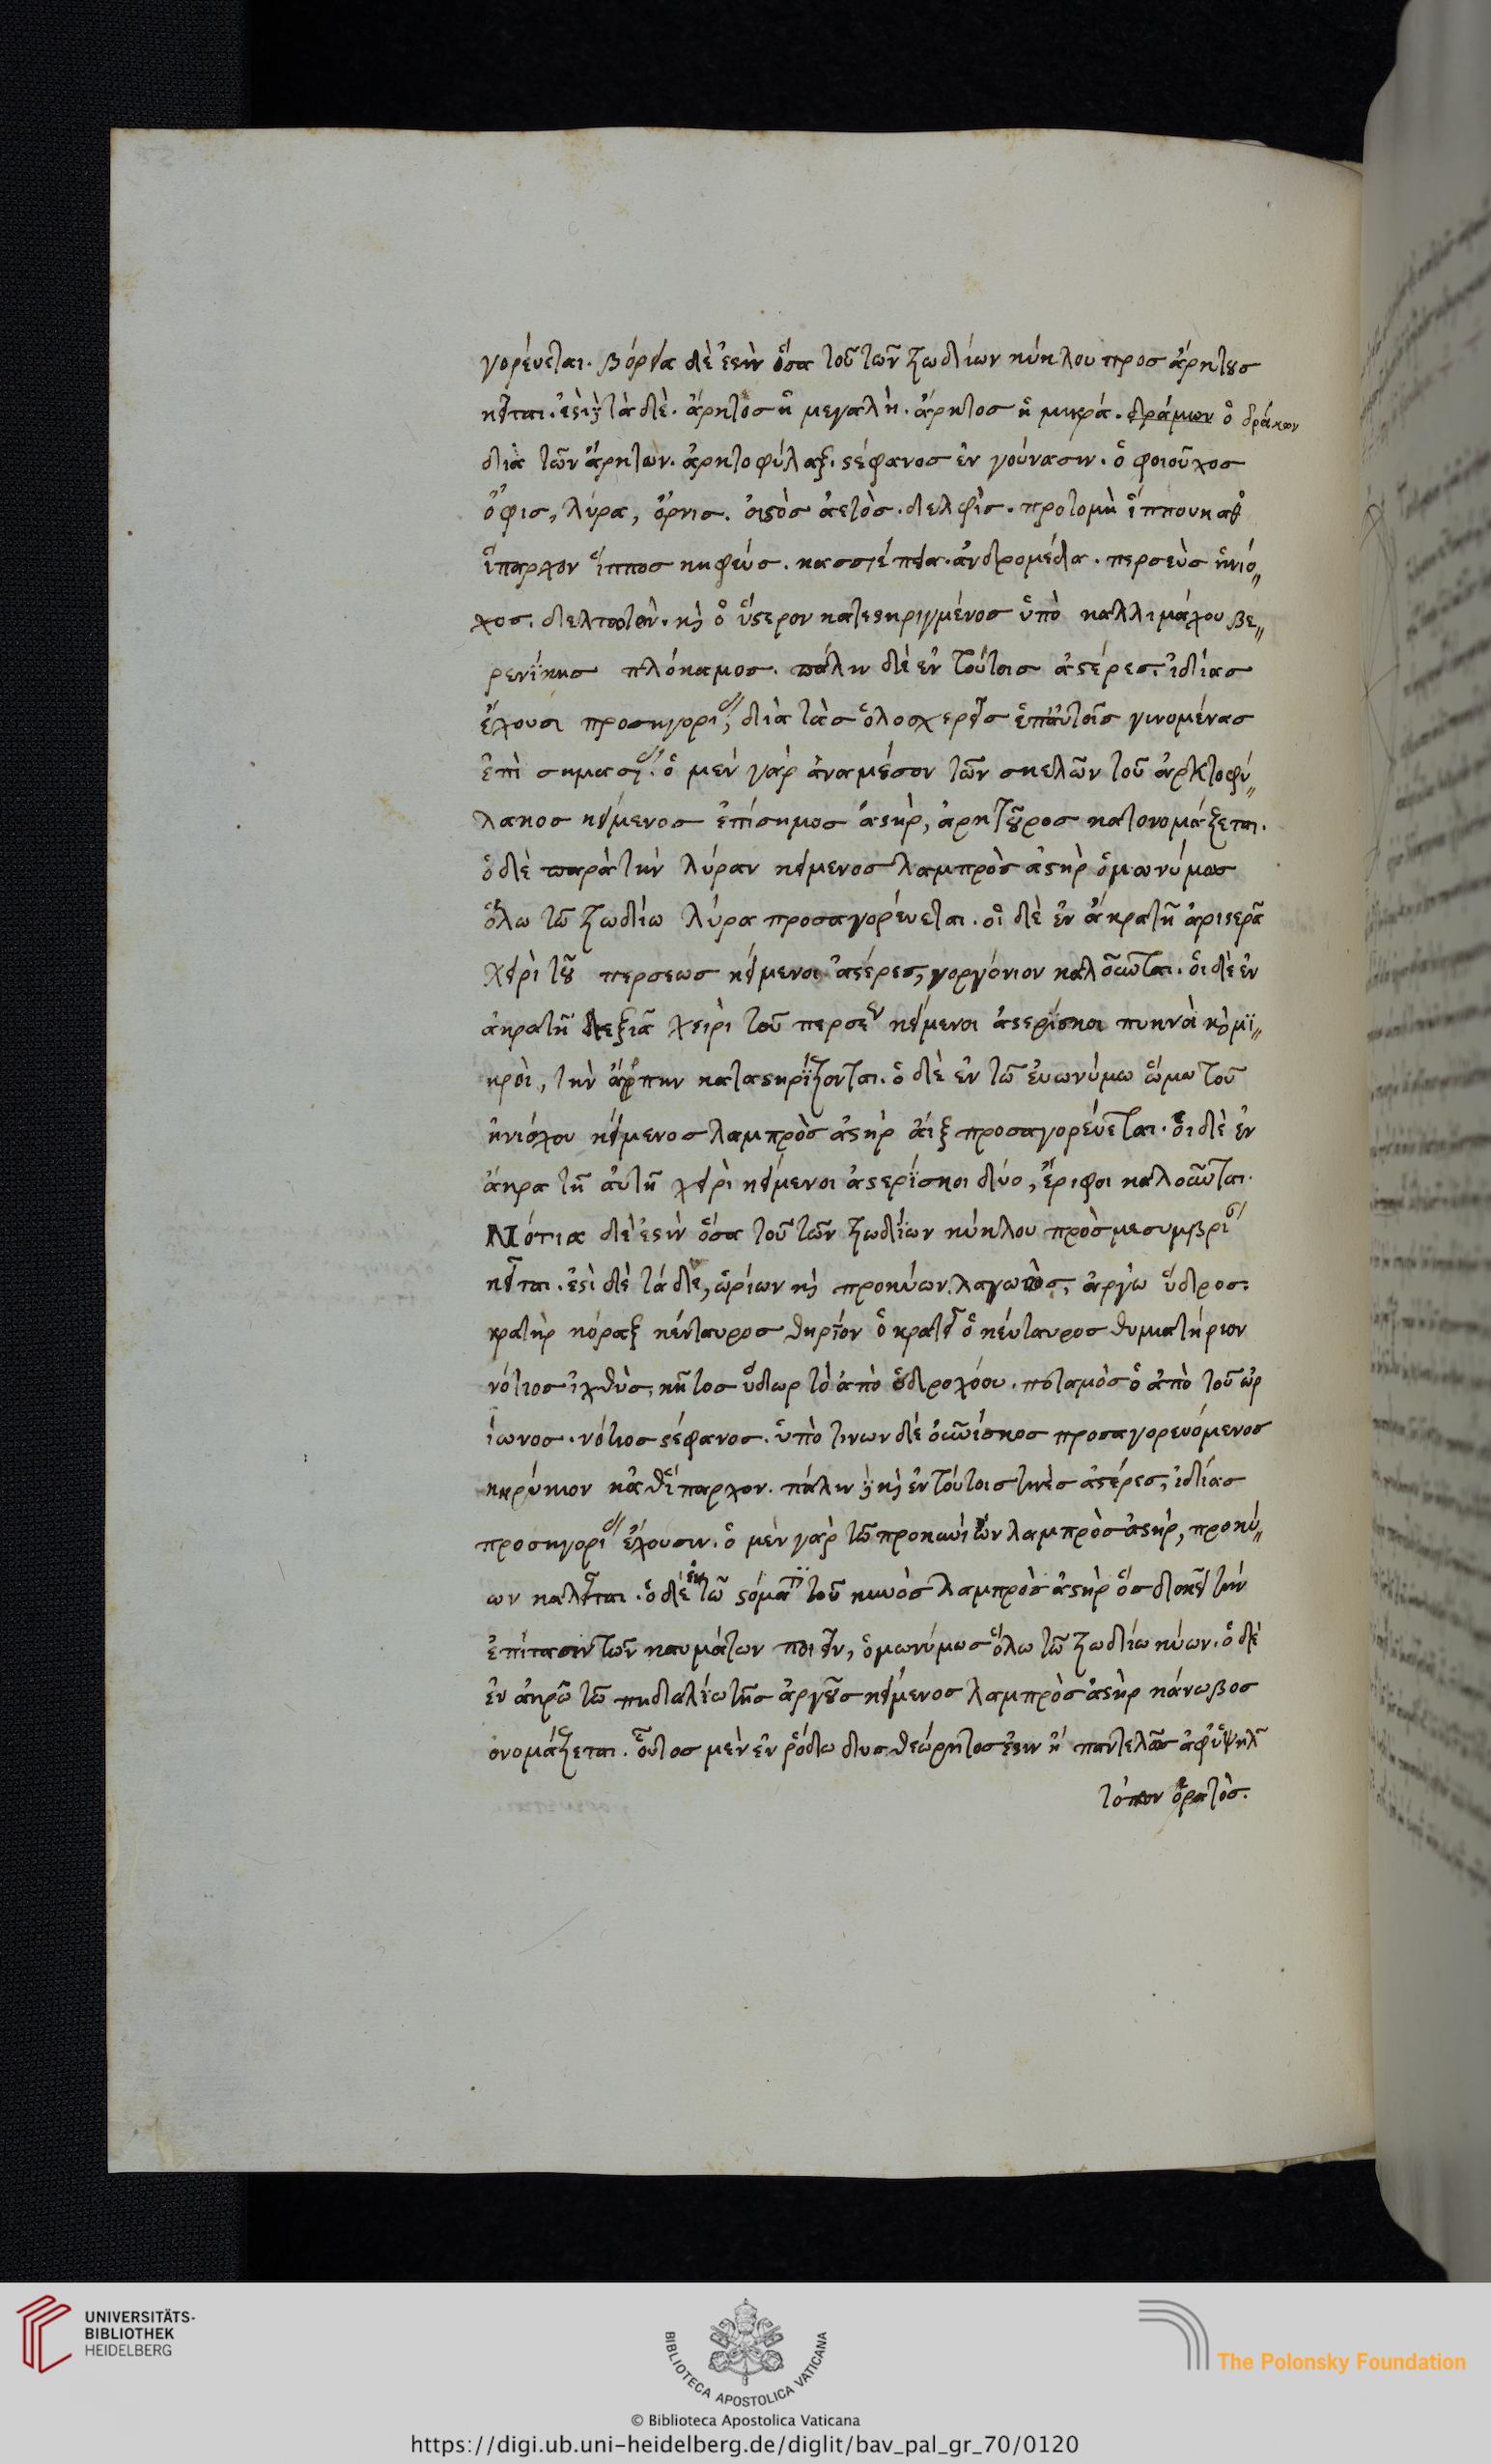 γορέυεται. βόρεια δὲ ἐστὶν ὅσα τοῦ τῶν ζωδίων κύκλου προσ ἄρκτους
κεῖται. ἐστὶ δὲ τὰ δὲ. ἄρκτος ἡ μεγαλὴ. ἄρκτος ἡ μικρά. δράμων ὁ δράκων
διὰ τῶν ἄρκτων. ἀρκτοφύλαξ. στέφανοσ ἐν γούνασιν. ὁ φοιοῦχος
ὄφισ, λύρα, ὄρνισ. ὀιστὸσ ἀετὸσ. δελφὶσ. προτομὴ ἵππου καθ
ἵπαρχον ἵπποσ κηφεύσ. κασσιέπεια. ἀνδρομέδα. περσεὺσ ἡνιό〃
χοσ. δελτωτὸν. καὶ ὁ ὕστερον κατεστηριγμένοσ ὑπὸ καλλιμάχου βε〃
ρενίκησ πλόκαμοσ. πάλιν δὲ ἐν τούτοισ ἀστέρεσ ἰδίασ
ἔχουσι προσηγορίας, διὰ τὰσ ὁλοσχερεῖσ ἐπ' ἀυτοῖσ γινομένασ
ἐπὶ σημασίας. ὁ μὲν γὰρ ἀναμέσον τῶν σκελῶν τοῦ ἀρκτοφύ〃
λακοσ κείμενοσ ἐπίσημοσ ἀστὴρ, ἀρκτοῦροσ κατονομάζεται.
ὁ δὲ παρὰ τὴν λύραν κείμενοσ λαμπρὸσ ἀστὴρ ὁμωνύμωσ
ὅλω τῶ ζωδίω λύρα προσαγορέυεται. οἱ δὲ ἐν ἄκρα τῆ ἀριστερᾶ
χειρὶ τοῦ περσεωσ κείμενοι ἀστέρεσ, γοργόνιον καλοῦνται. ὁι δὲ ἐν
ἀκρα τῆ δεξιᾶ χειρὶ τοῦ περσε κείμενοι ἀστερίσκοι πυκνοὶ καὶ μϊ〃
κροὶ, τὴν ἅρπην καταστηρίζονται. ὁ δὲ ἐν τῶ ἐυωνύμω ὤμω τοῦ
ἡνιόχου κείμενοσ λαμπρὸσ ἀστὴρ ἀὶξ προσαγορέυεται. ὁι δὲ ἐν
ἄκρα τῆ ἀυτῆ χειρὶ κείμενοι ἀστερίσκοι δύο, ἔριφοι καλοῦνται.
Νότια δὲ ἐστὶν ὅσα τοῦ τῶν ζωδίων κύκλου πρὸσ μεσυμβρί
κεῖται. ἐστὶ δὲ τά δε, ὠρίων καὶ προκύων. λαγωὸσ, ἀργὼ ὕδροσ.
κρατὴρ κόραξ κένταυροσ θηρίον ὁ κρατεῖ ὁ κένταυροσ θυμιατήριον
νότιοσ ἰχθὺσ, κῆτοσ ὕδωρ τὸ ἀπὸ ὑδροχόου. ποταμὸσ ὁ ἀπὸ τοῦ ὠρ
ίωνοσ. νότιοσ στέφανοσ. ὑπὸ τινων δὲ ὀυνίσκοσ προσαγορευόμενοσ
κηρύκιον καθ' ἵπαρχον. πάλιν δὲ καὶ ἐν τούτοισ τινὲσ ἀστέρεσ, ἰδίασ
προσηγορίας ἔχουσιν. ὁ μὲν γὰρ τῶ προκυνὶ ὢν λαμπρὸσ ἀστὴρ, προκύ〃
ων καλεῖται. ὁ δὲ ἐν τῶ στόματι τοῦ κυνὸσ λαμπρὸσ ἀστὴρ ὅσ δοκεῖ τὴν
ἐπίτασιν τῶν καυμάτων ποιεῖν, ὁμωνύμωσ ὅλω τῶ ζωδίω κύων. ὁ δὲ
ἐν ἀκρῶ τῶ πηδαλίω τῆσ ἀργοῦσ κείμενοσ λαμπρὸσ ἀστὴρ κάνωβοσ
ονομάζεται. οὗτοσ μὲν ἐν ῥόδω δυσθεώρητοσ ἐστιν ἢ παντελῶσ ἀφ' ὑψηλ
τόπων ὁρατὸσ.
UNIVERSITÄTS-
BIBLIOTHEK
HEIDELBERG
BIBLIOTECA APOSTOLICA VATICANA
The Polonsky Foundation
© Biblioteca Apostolica Vaticana
https://digi.ub.uni-heidelberg.de/diglit/bav_pal_gr_70/0120